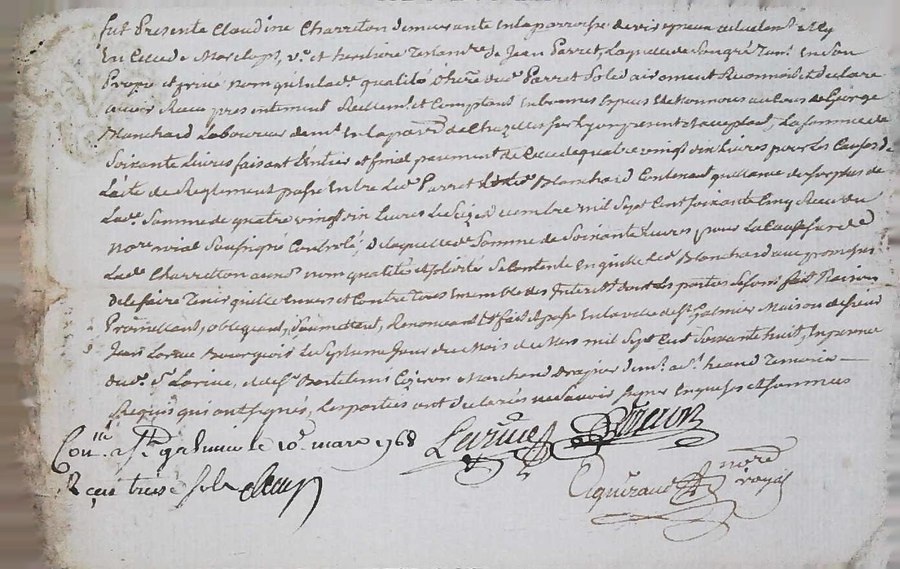 fut Presente Claudine Charreton demeurante en la parroisse de
En lieu de v.e et heritiere de Jean Parret, Laquelle de Son gré En Son
Propre et privé nom qu'en lad.e qualité d.here dud. Parret Solidairement Reconnoist et declare
avoir Receu presentement Reellem.t et Comptant En bonnes Especes de George
Blanchard Laboureur dem.t En la par.sse de Chazelles sur Lyon present et acceptant, La Somme de
Soixante Livres faisant L'entier et final payement de Celle de quatre vingt dix Livres pour les Causes de
L'acte de Reglement passé Entre Led. Parret & Led. Blanchard Contenant quittance du Surplus de
Lad.e Somme de quatre vingt dix Livres Le Seize decembre mil Sept Cent Soixante Cinq Receu du
no.re royal Soussigné Controlé, de laquelle d.e Somme de Soixante Livres, pour La Cause Lad.
Lad.e Charretton aux d. nom qualités et Solidité Se Contente En quitte Led. Blanchard avec promesse
de le faire Tenir quitte Envers et Contre Tous Ensemble des Interests dont les parties Se Sont fait Raison
Promettant, obligeant, Soumettant, Renonceant &c fait et passé En la ville de St. Galmier Maison de Sieur
Jean Lorine Bourgeois Le Septieme Jour du Mois de Mars mil Sept Cent Soixante huit, En presence
dud. S.r Lorine, et de S.r Bartelemi Marchand Drapier dem.t aud. St.
Requis qui ont Signés, Les parties ont declarés ne Scavoir Signer Enquises et Sommées
Con.llé a St. galmier le 10.e mars 1768
Reçu treise sols
Lorine
no.re
royal